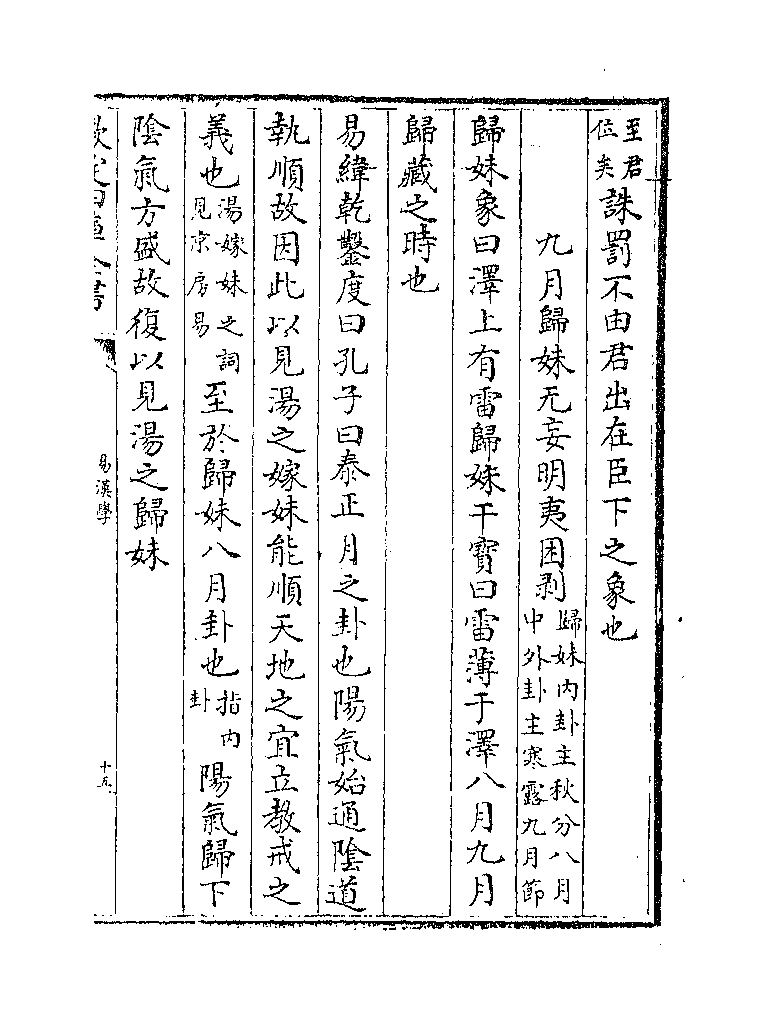 至君位矣誅罰不由君出在臣下之象也
九月歸妹无妄明夷困剥歸妹内卦主秋分八月中外卦主寒露九月節
歸妹象曰澤上有雷歸妹干寳曰雷薄于澤八月九月
歸藏之時也
易緯乾鑿度曰孔子曰泰正月之卦也陽氣始通陰道
執順故因此以見湯之嫁妹能順天地之宜立教戒之
義也湯嫁妹之詞見京房易至於歸妹八月卦也指内卦陽氣歸下
陰氣方盛故復以見湯之歸妹
欽定四庫全書
易漢學
十五